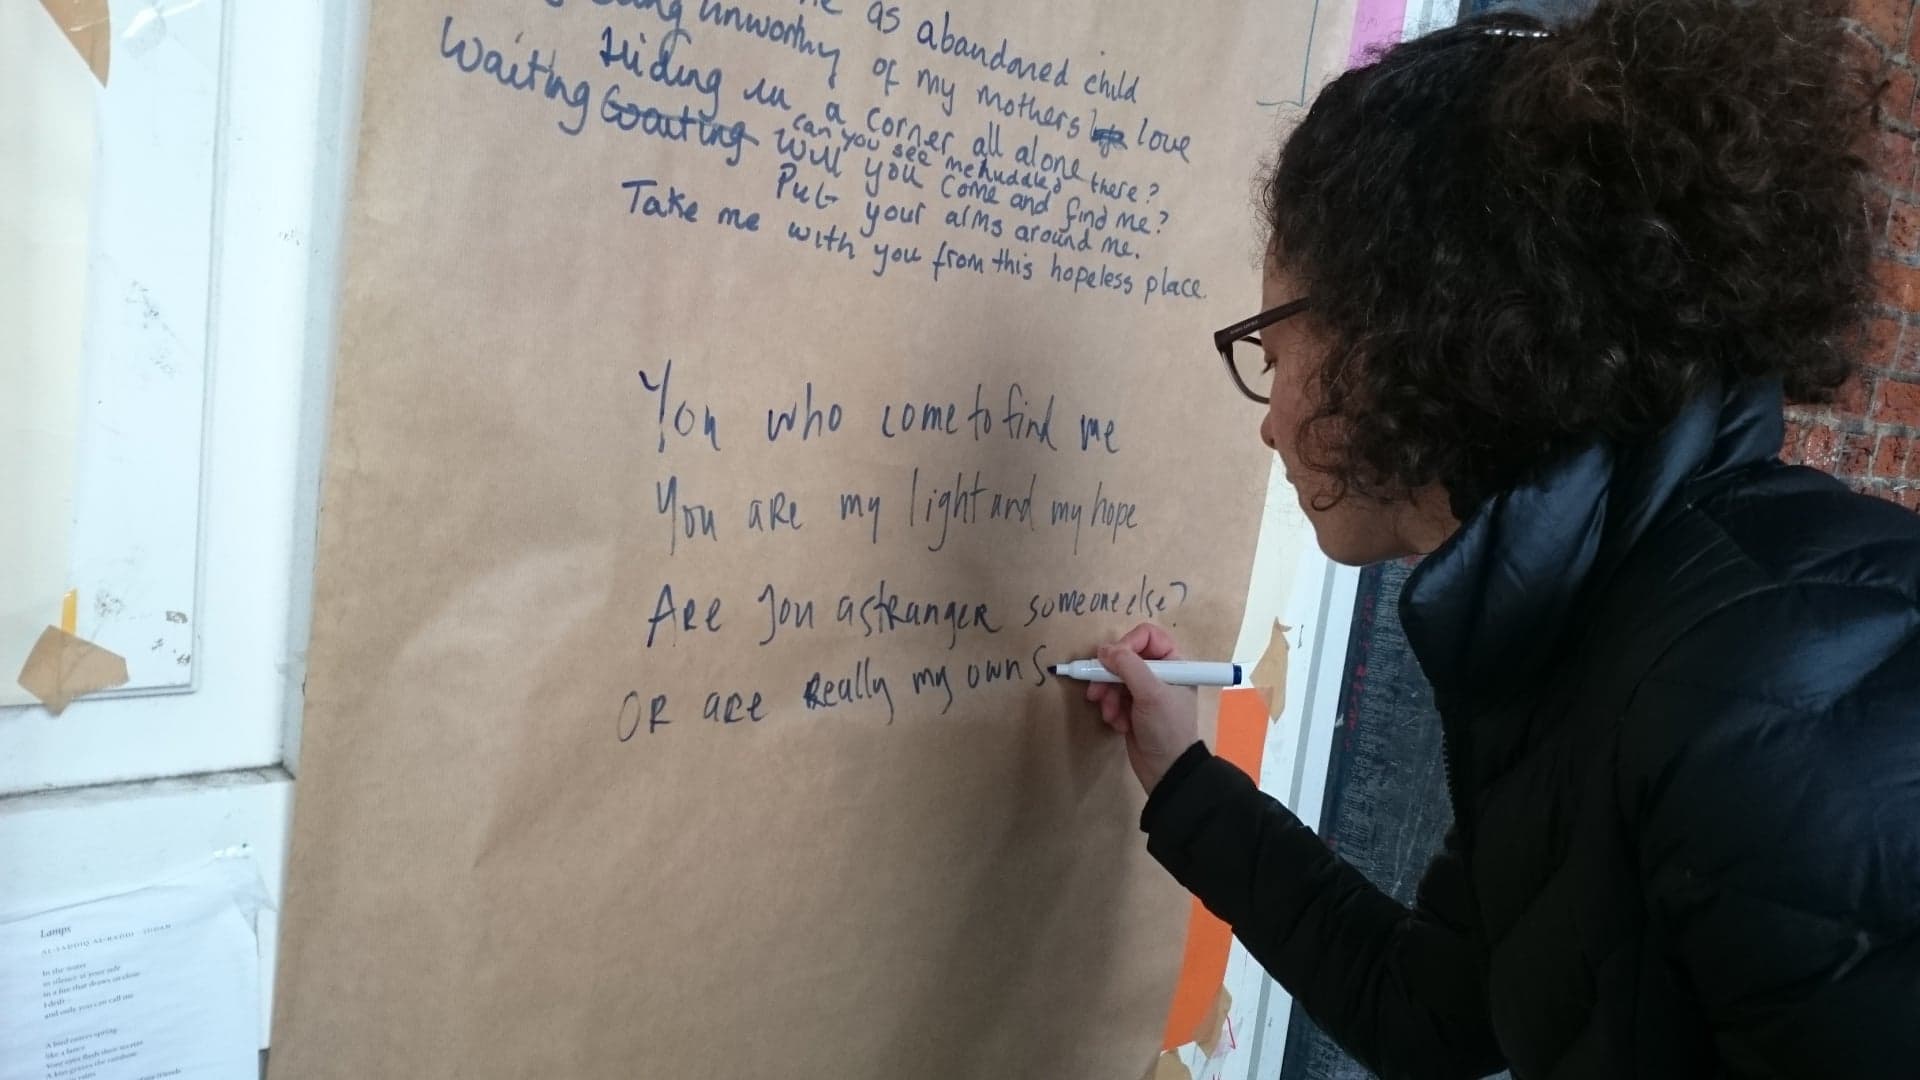 as abandoned child
unworthy of my mothers love
Hiding in a corner all alone
can you see me huddled there?
Waiting Waiting Will you come and find me?
Put your arms around me.
Take me with you from this hopeless place.
You who come to find me
You are my light and my hope
Are you a stranger someone else?
OR are really my own S
Lamps
AL-SADDIQ AL-RADDI
In the water
in silence at your side
I drift
and only you can call me
A bird enters spring
like a lance
Your eyes flesh their secrets
A kiss greets the rainbow